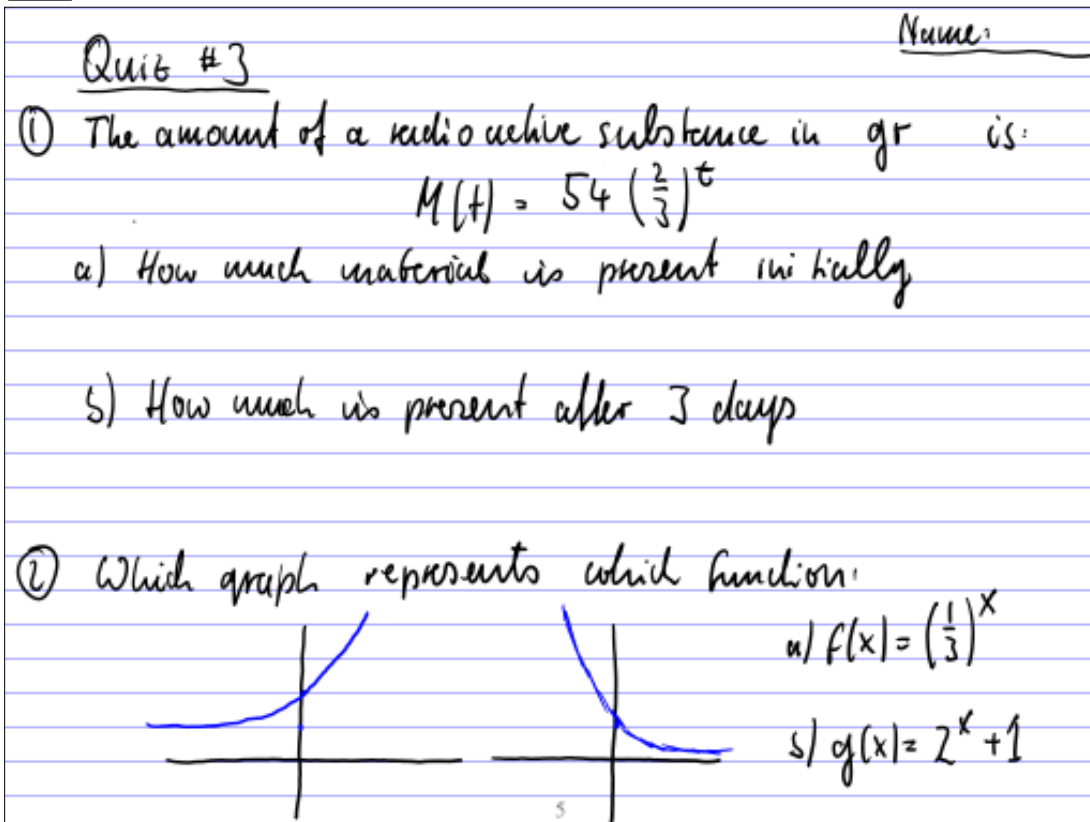 Name:
Quiz #3
① The amount of a radioactive substance in gr is:
M(t) = 54 (2/3)^t
a) How much material is present initially
b) How much is present after 3 days
② Which graph represents which function:
a) f(x) = (1/3)^x
b) g(x) = 2^x + 1
5